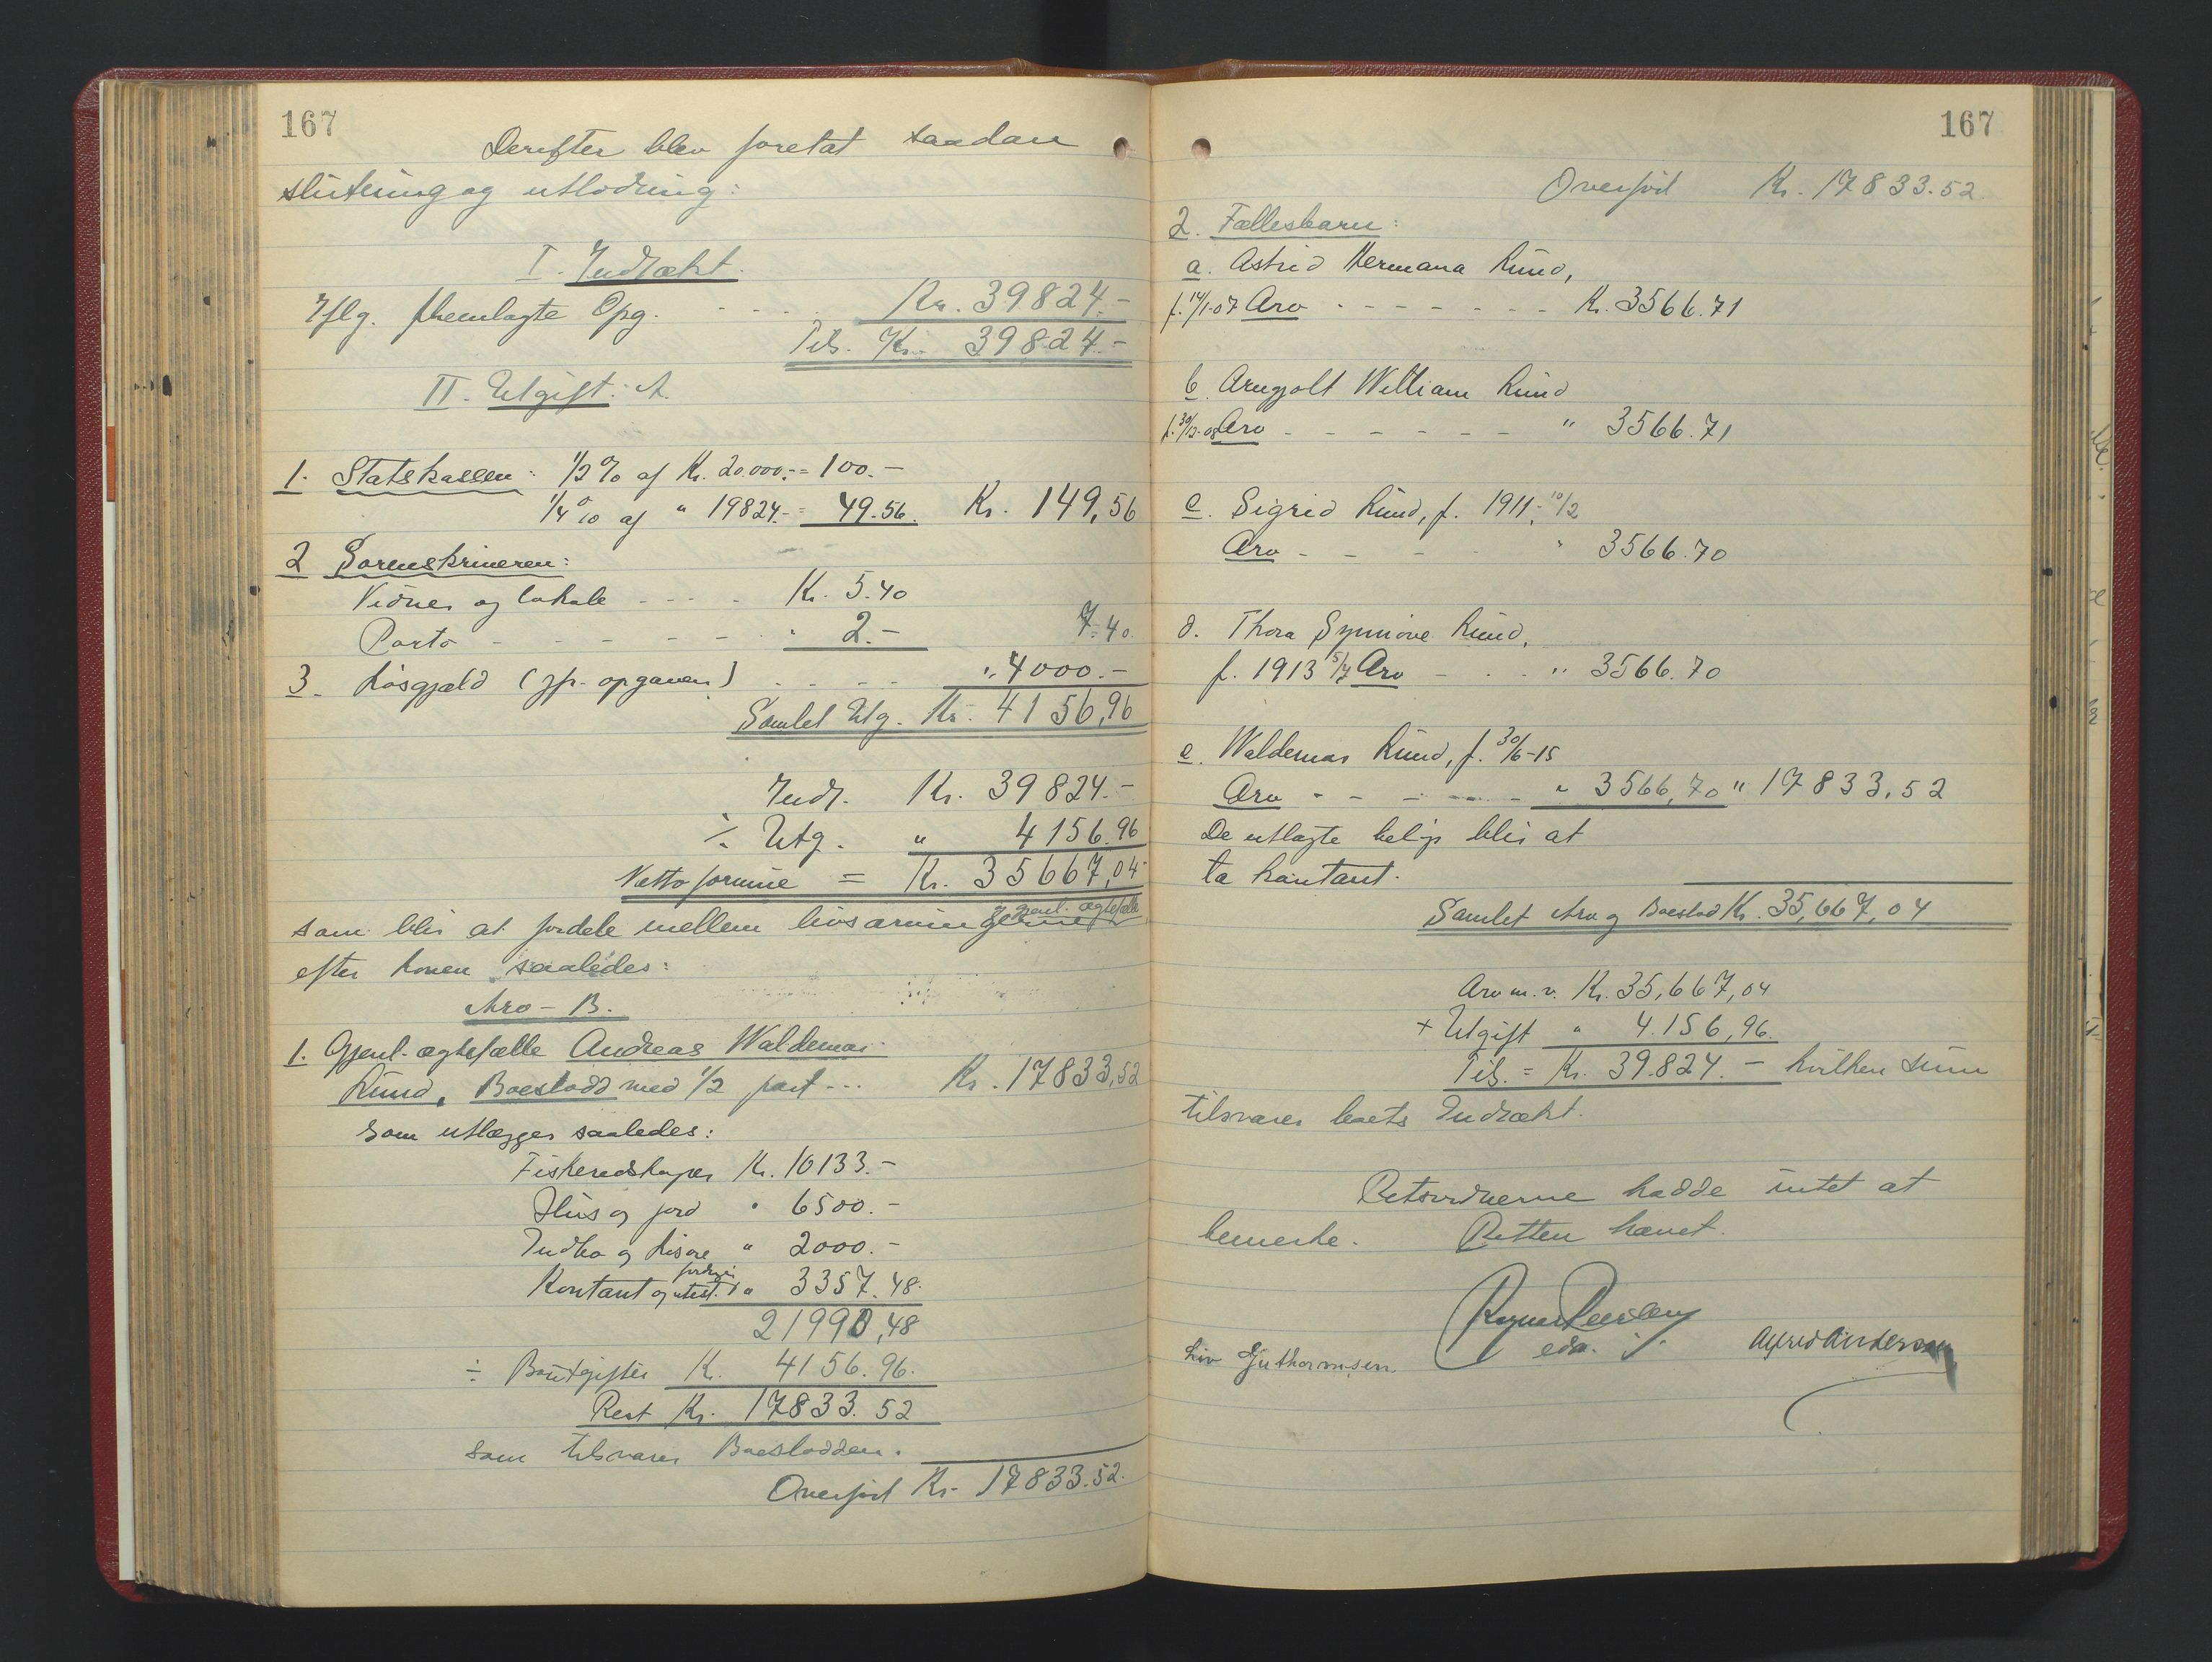 167
Derefter blev foretat saadan
slutning og utlodning:
I. Indtækt.
Iflg. fremlagte Opg. - - - - Kr. 39824.-
Tils. Kr. 39824.-
II. Utgift: A.
1. Statskassen: 1/2 % af Kr. 20.000.- = 100.-
1/4 % af " 19824.- = 49.56. Kr. 149,56
2 Sorenskriveren:
Vidner og lokale - - - - Kr. 5.40
Porto - - - - - - " 2.- 7.40
3. Løsgjæld (jfr. opgaven) - - - - " 4000.-
Samlet Utg. Kr. 4156,96
Indt. Kr. 39824.-
÷ Utg. " 4156.96
Nettoformue = Kr. 35667,04
som blir at fordele mellem livsarvingerne og gjenl. ægtefælle
efter loven saaledes:
Arv - B.
1. Gjenl. ægtefælle Andreas Waldemar
Lund, Boeslodd med 1/2 part --- Kr. 17833,52
som utlægges saaledes:
Fiskeredskaper Kr. 10133.-
Hus og jord " 6500.-
Indbo og løsøre " 2000.-
Kontant og utest. fordringer " 3357.48.
21990,48
÷ Boutgifter K. 4156.96.
Rest Kr. 17833.52
som tilsvarer Boeslodden.
Overført Kr. 17833.52.
167
Overført Kr. 17833.52
2. Fællesbarn:
a. Astrid Hermana Lund,
f. 14/1-07 Arv - - - - - - - Kr. 3566.71
b. Arngjolt William Lund
f. 30/12-08 Arv - - - - - - - " 3566.71
c. Sigrid Lund, f. 1911, 10/2
Arv - - - - " 3566.70
d. Thora Synnøve Lund,
f. 1913 5/7 Arv - - - " 3566.70
e. Waldemar Lund, f. 30/6-15
Arv - - - - - " 3566,70 " 17833,52
De utlagte beløp blir at
ta kontant.
Samlet Arv og Boeslod Kr. 35,667,04
Arv m.v. Kr. 35,667,04
+ Utgift " 4.156,96.
Tils. = Kr. 39.824.- hvilken sum
tilsvarer boets Indtækt.
Retsvidnerne hadde intet at
bemerke. Retten hævet.
edsv. f.
Liv Guthormsen
Alfred Andersen